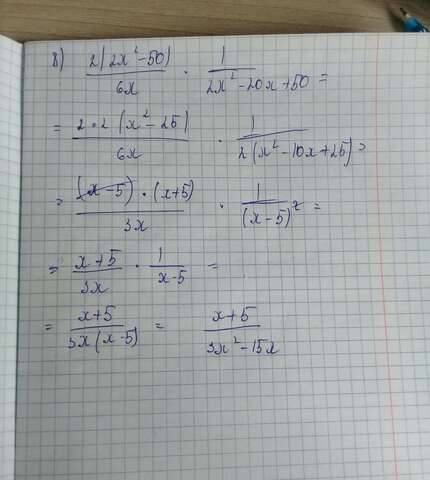 8) 2(2x²-50)/6x · 1/2x²-20x+50 =
= 2·2(x²-25)/6x · 1/2(x²-10x+25) =
= (x-5)·(x+5)/3x · 1/(x-5)² =
= x+5/3x · 1/x-5 =
= x+5/3x(x-5) = x+5/3x²-15x